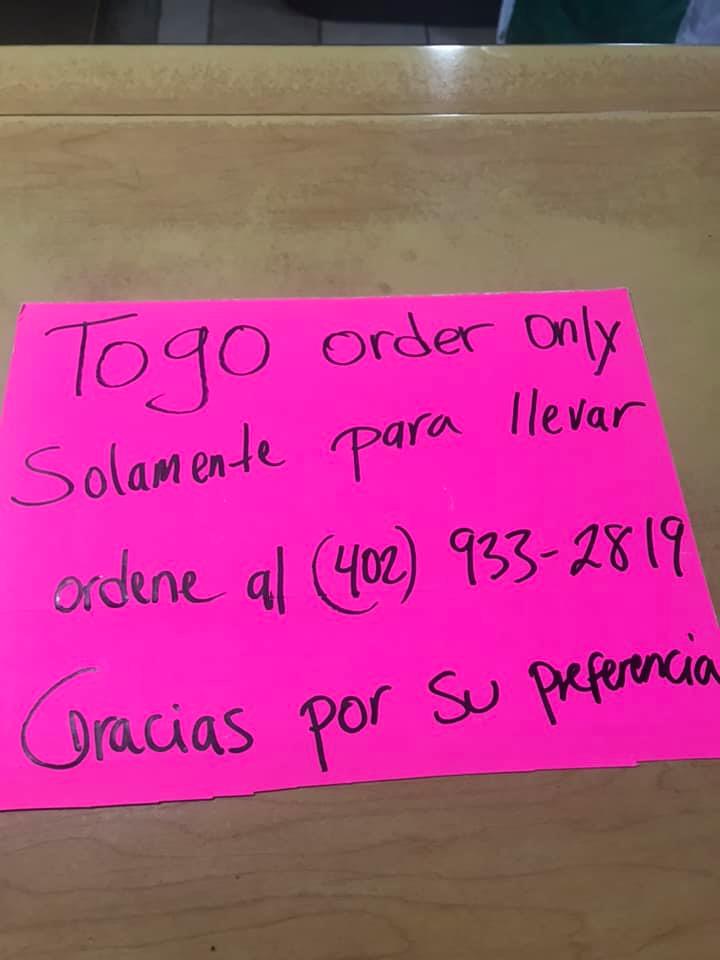 Togo order only
Solamente para llevar
ordene al (402) 933-2819
Gracias por su preferencia